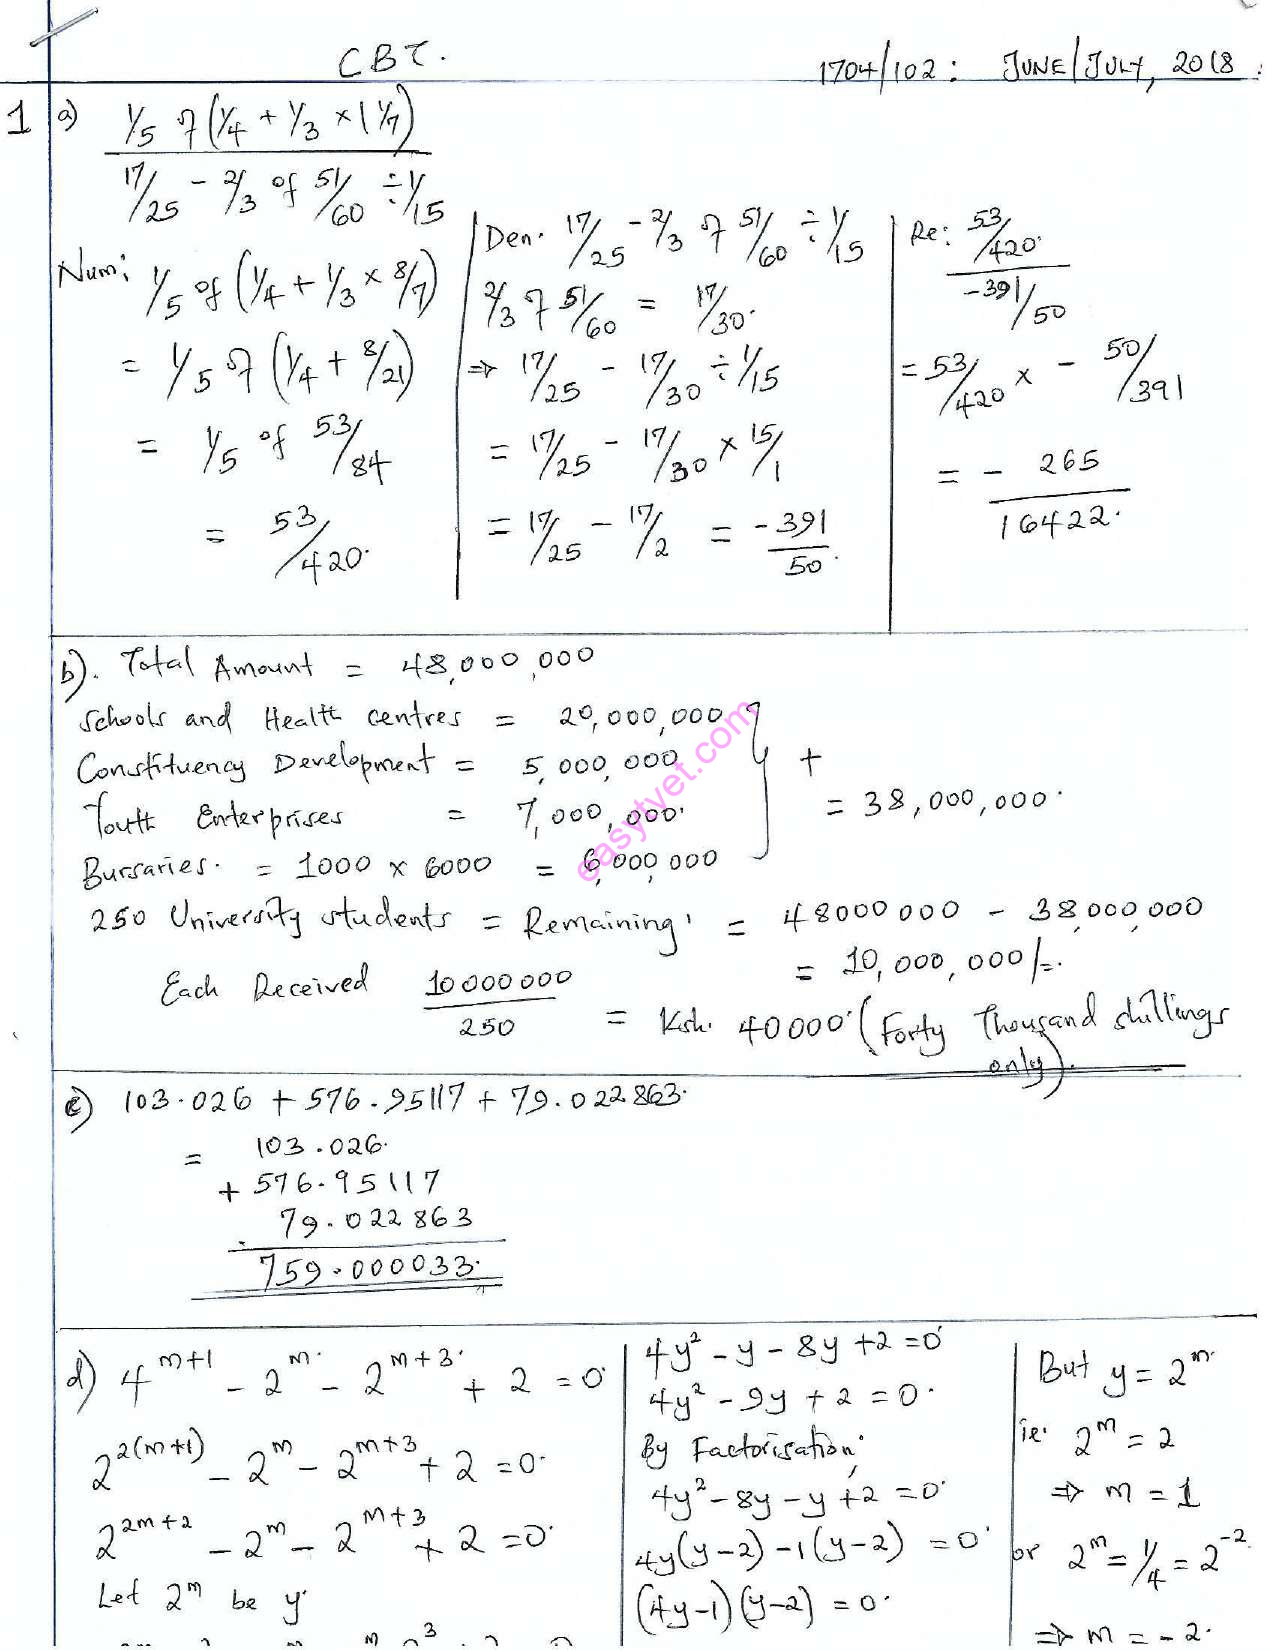 CBT.
1704/102: JUNE/JULY, 2018
1 a) 1/5 of (1/4 + 1/3 × 1 1/7)
17/25 - 2/3 of 51/60 ÷ 1/15
Num: 1/5 of (1/4 + 1/3 × 8/7)
= 1/5 of (1/4 + 8/21)
= 1/5 of 53/84
= 53/420.
Den. 17/25 - 2/3 of 51/60 ÷ 1/15
2/3 of 51/60 = 17/30.
⇒ 17/25 - 17/30 ÷ 1/15
= 17/25 - 17/30 × 15/1
= 17/25 - 17/2 = -391/50.
Re: 53/420.
-391/50
= 53/420 × - 50/391
= - 265
16422.
b). Total Amount = 48,000,000
Schools and Health centres = 20,000,000
Constituency Development = 5,000,000
Youth Enterprises = 7,000,000.
Bursaries. = 1000 × 6000 = 6,000,000
+
= 38,000,000.
250 University students = Remaining = 48000000 - 38,000,000
= 10,000,000/=.
Each Received 10000000/250 = Ksh. 40000. (Forty Thousand shillings
only).
c) 103.026 + 576.95117 + 79.022863.
= 103.026.
+ 576.95117
79.022863
759.000033.
d) 4^(m+1) - 2^m - 2^(m+3) + 2 = 0
2^(2(m+1)) - 2^m - 2^(m+3) + 2 = 0.
2^(2m+2) - 2^m - 2^(m+3) + 2 = 0
Let 2^m be y
4y² - y - 8y + 2 = 0
4y² - 9y + 2 = 0.
By Factorisation,
4y² - 8y - y + 2 = 0
4y(y-2) -1(y-2) = 0
(4y-1)(y-2) = 0.
But y = 2^m.
ie. 2^m = 2
⇒ m = 1
or 2^m = 1/4 = 2^-2
⇒ m = -2.
easytvet.com